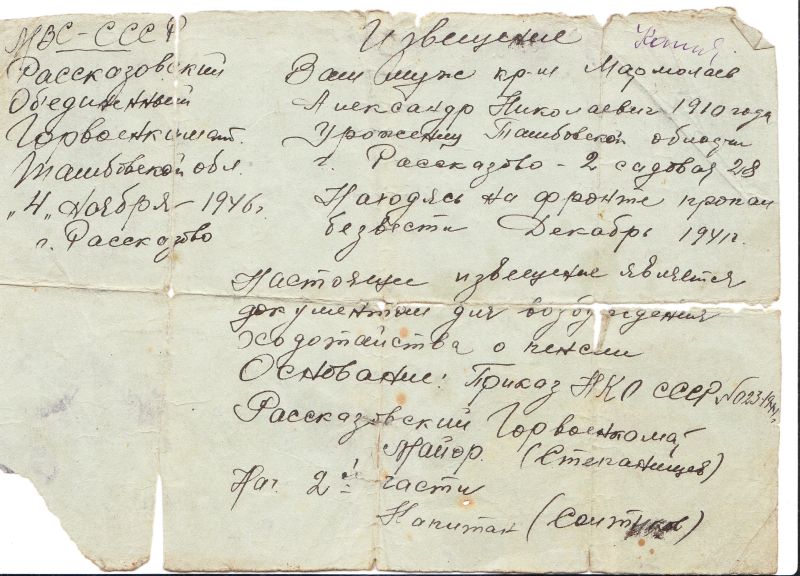 МВС-СССР
Рассказовский
Обединенный
Горвоенкомат.
Тамбовской обл.
"4" Ноября - 1946 г
г. Рассказово
Извещение
Копия.
Ваш муж кр-ц Мармолаев
Александр Николаевич 1910 года
Уроженец Тамбовской области
г. Рассказово - 2 садовая 28
Находясь на фронте пропал
безвести Декабрь 1941 г.
Настоящее извещение является
документом для возбуждения
ходотайства о пенсии
Основание: Приказ НКО СССР № 023-1941 г.
Рассказовский Горвоенкомат
Майор (Степанищев)
Нач. 2й части
Капитан